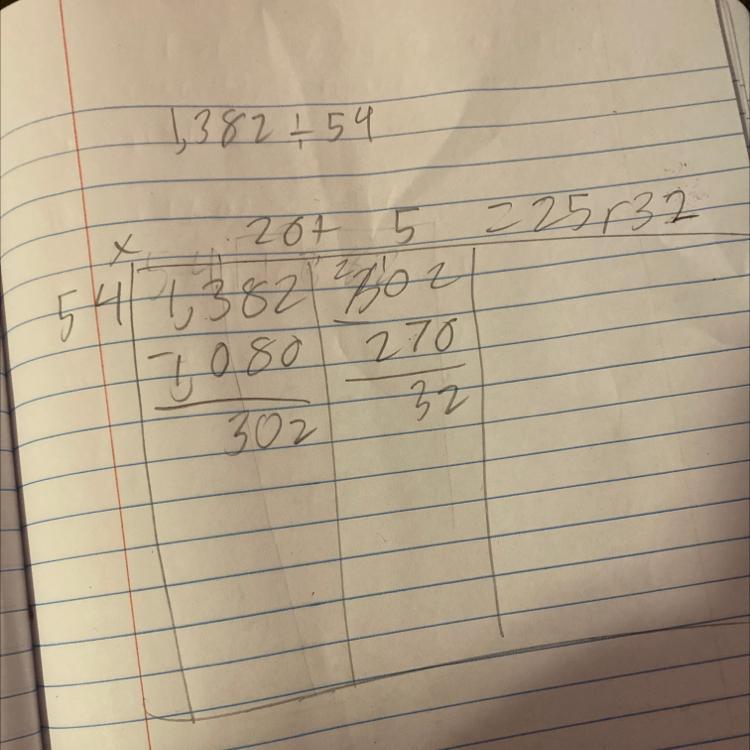 1,382 ÷ 54
x 20+ 5 = 25 r 32
54 1,382 2 1 302
-1,080 - 270
302 32